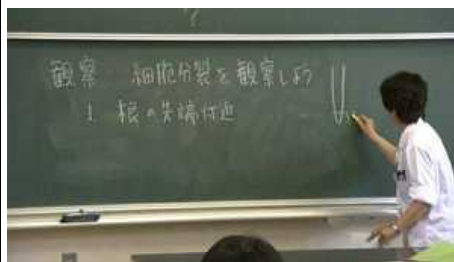 観察 細胞分裂を観察しよう
1 根の先端付近